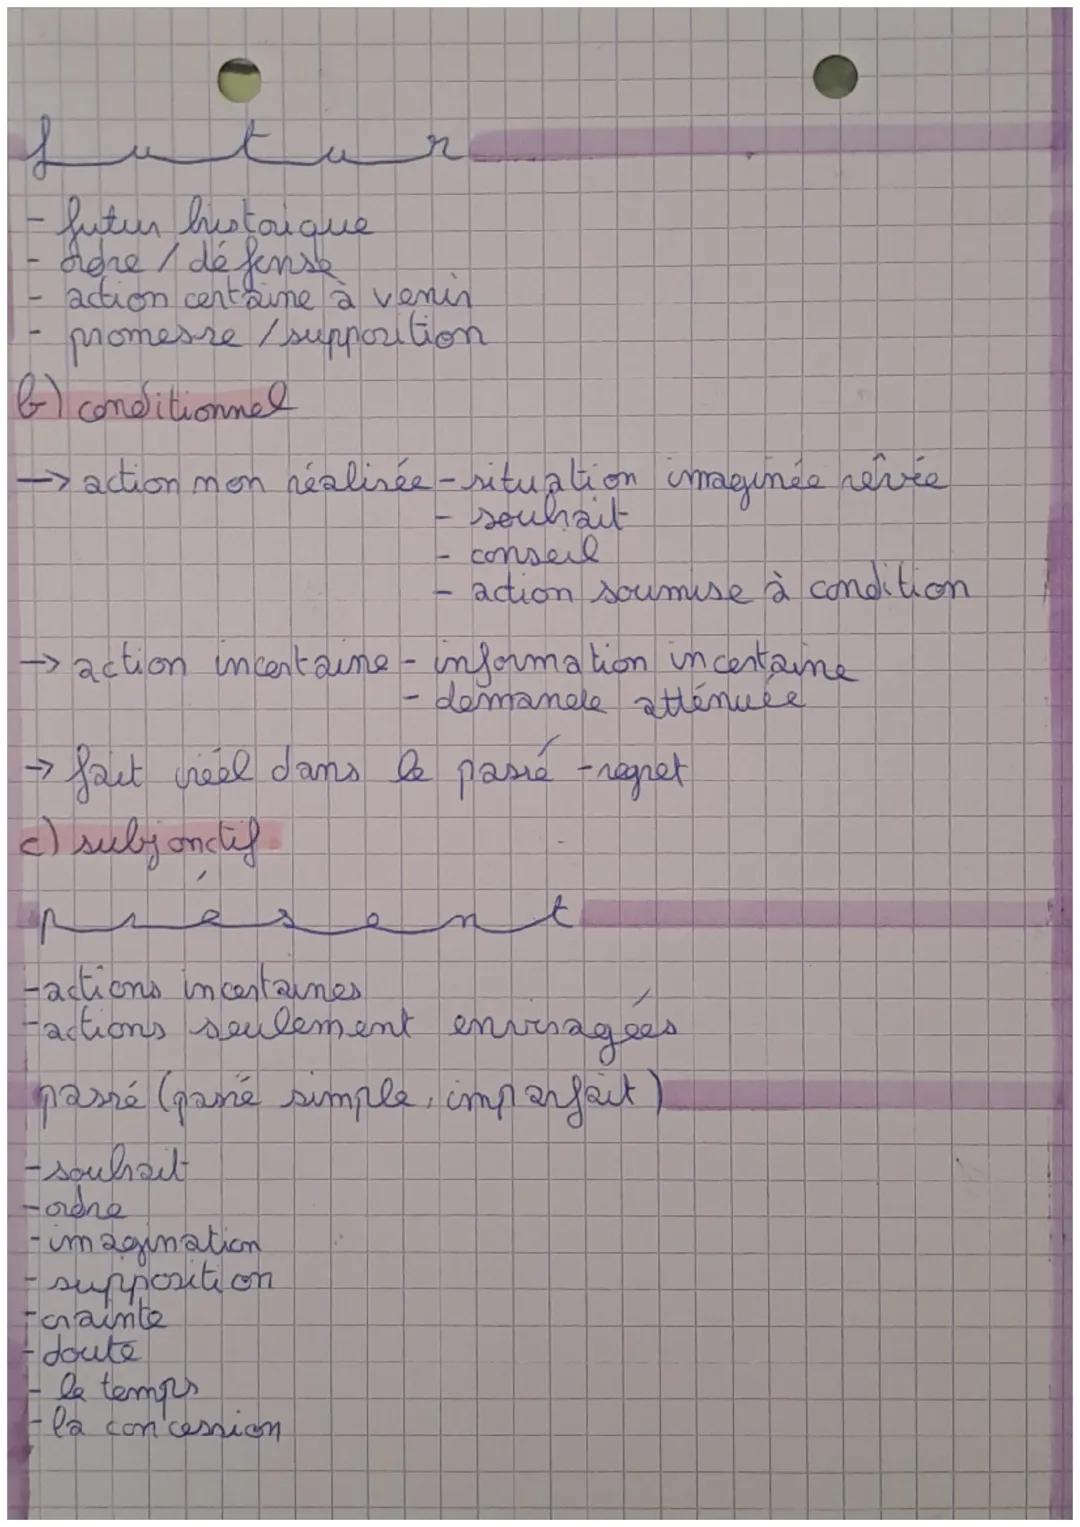 futur
- futur historique
- ordre / défense
- action certaine à venir
- promesse / supposition
b) conditionnel
→ action non réalisée - situation imaginée rêvée
- souhait
- conseil
- action soumise à condition
→ action incertaine - information incertaine
- demande atténuée
→ fait réel dans le passé - regret
c) subjonctif
présent
- actions incertaines
- actions seulement envisagées
passé (passé simple, imparfait)
- souhait
- ordre
- imagination
- supposition
- crainte
- doute
- le temps
- la concession